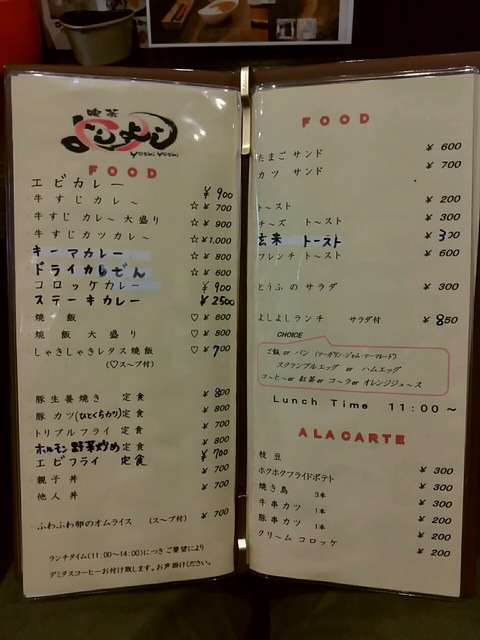 喫茶
よしよし
Yoshi Yoshi
FOOD
エビカレー ¥900
牛すじカレ〜 ☆¥700
牛すじ カレ〜 大盛り ☆¥900
牛すじカツカレ〜 ☆¥1,000
キーマカレー ☆¥800
ドライカレー ☆¥600
コロッケカレー ¥900
ステーキカレー ¥2500
焼 飯 ♡¥600
焼 飯 大盛り ♡¥800
しゃきしゃきレタス焼飯 ♡¥700
(♡スープ付)
豚生姜焼き 定食 ¥800
豚カツ(ひとくちカツ)定食 ¥700
トリプルフライ 定食 ¥800
ホルモン野菜炒め定食 ¥800
エビフライ 定食 ¥700
親子丼 ¥700
他人丼 ¥700
ふわふわ卵のオムライス (スープ付) ¥700
ランチタイム(11:00〜14:00)につきご要望により
デミタスコーヒーお付け致します。お声掛けください。
FOOD
たまご サンド ¥600
カツ サンド ¥700
トースト ¥200
チーズ トースト ¥300
玄米 トースト ¥300
フレンチ トースト ¥600
とうふのサラダ ¥300
よしよしランチ サラダ付 ¥850
CHOICE
ご飯 or パン (マーガリン・ジャム・マーマレード)
スクランブルエッグ or ハムエッグ
コーヒー or 紅茶 or コーラ or オレンジジュース
Lunch Time 11:00〜
ALACARTE
枝豆 ¥300
ホクホクフライドポテト ¥300
焼き鳥 3本 ¥300
牛串カツ 1本 ¥200
豚串カツ 1本 ¥200
クリーム コロッケ ¥200